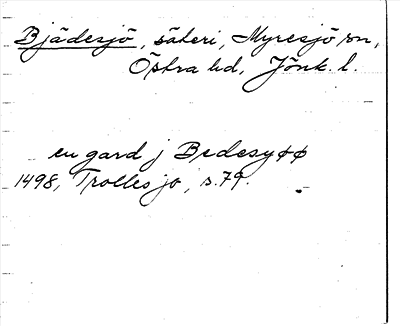 Bjädesjö, säteri, Myresjö sn,
Östra hd, Jönk. l.
en gard j Bedesyøø
1498, Trollesjö, s. 79.